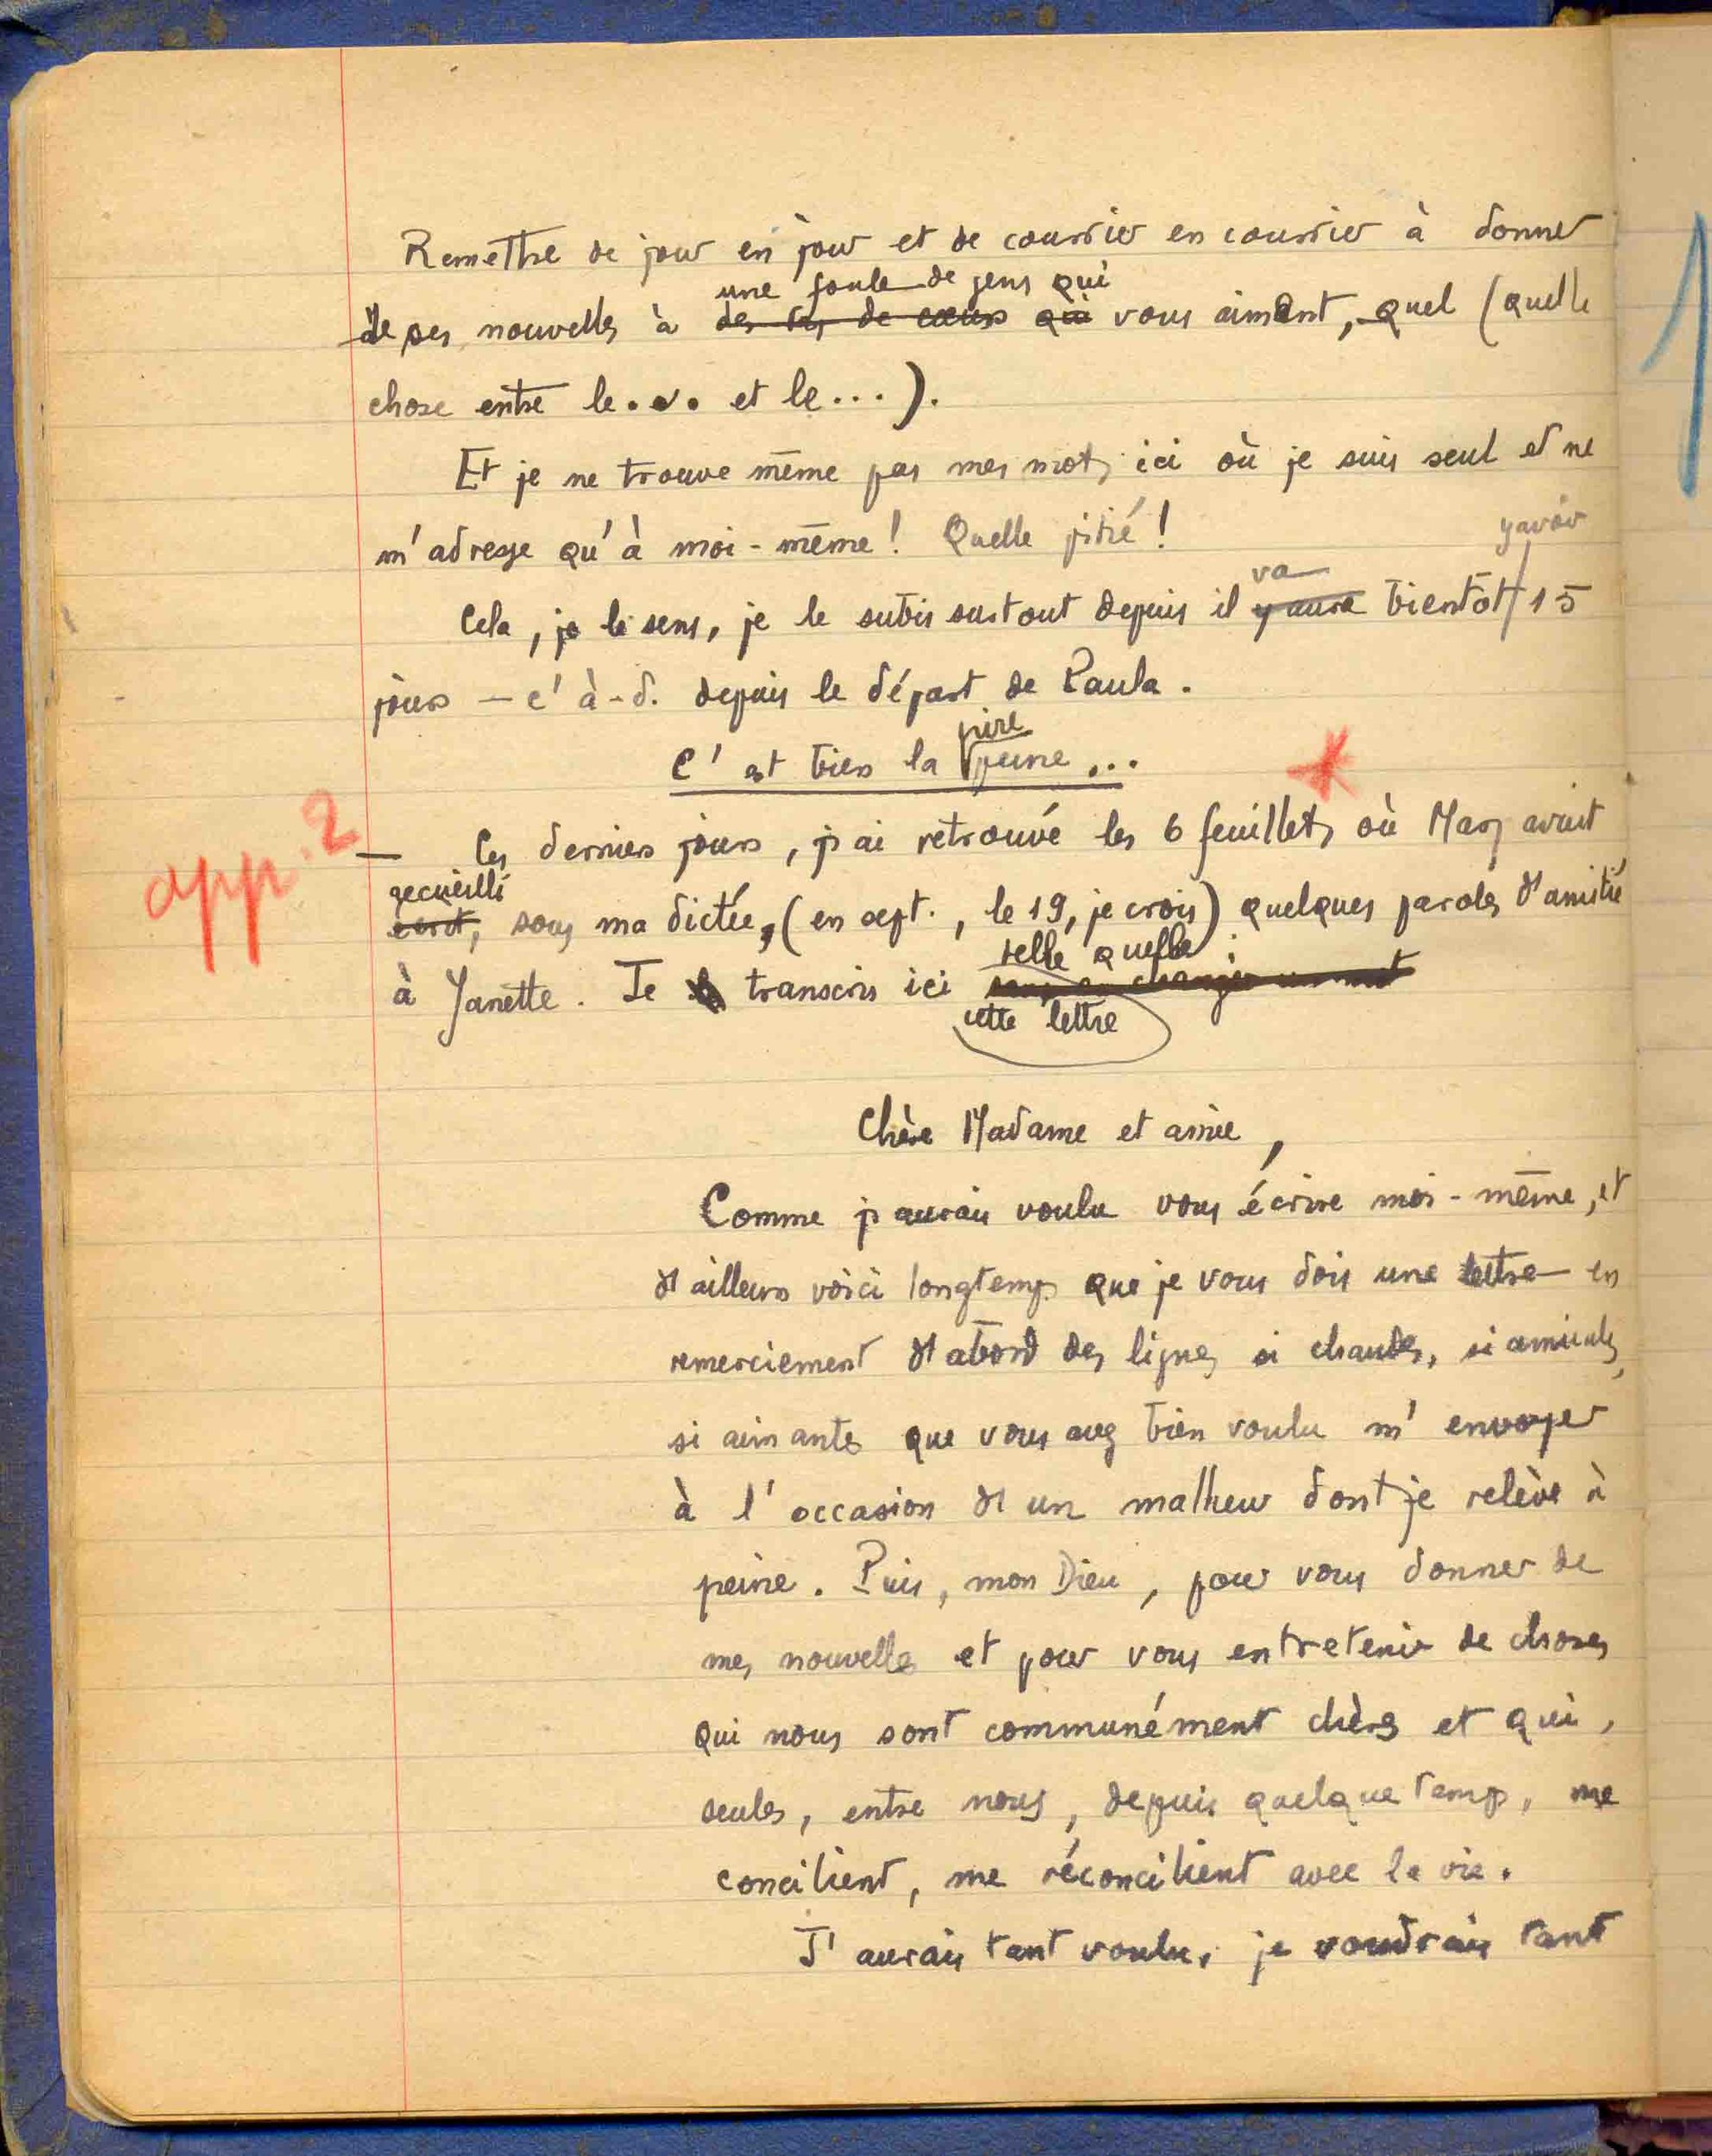 Remettre de jour en jour et de courrier en courrier à donner
une foule de gens qui
de ses nouvelles à des de cœurs qui vous aiment, quel (quelle
chose entre le... et le...).
Et je ne trouve même pas mes mots ici où je suis seul et ne
m'adresse qu'à moi-même! Quelle pitié!
y avoir
va
Cela, je le sens, je le subis surtout depuis il y aura bientôt 15
jours — c'à-d. depuis le départ de Paula.
pire
C'est bien la peine...
app. 2
— Ces derniers jours, j'ai retrouvé les 6 feuillets où Marg avait
recueilli
écrit, sous ma dictée, (en sept., le 19, je crois) quelques paroles d'amitié
telle quelle :
à Yanette. Je transcris ici sans en changer un mot
cette lettre
Chère Madame et amie,
Comme j'aurais voulu vous écrire moi-même, et
d'ailleurs voici longtemps que je vous dois une lettre en
remerciement d'abord des lignes si chaudes, si amicales,
si aimantes que vous avez bien voulu m'envoyer
à l'occasion d'un malheur dont je relève à
peine. Puis, mon Dieu, pour vous donner de
mes nouvelles et pour vous entretenir de choses
qui nous sont communément chères et qui,
seules, entre nous, depuis quelque temps, me
concilient, me réconcilient avec la vie.
J'aurais tant voulu, je voudrais tant